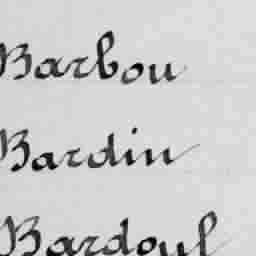 Barbou
Bardin
Bardoul